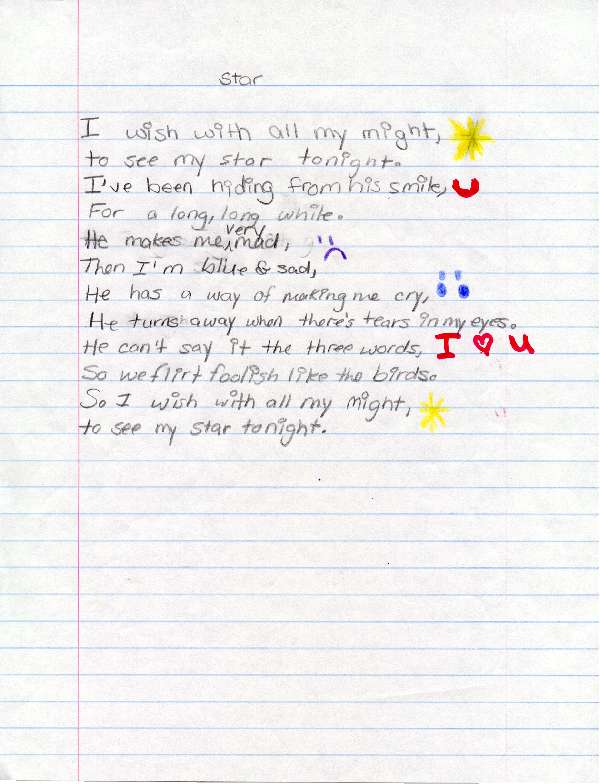 Star
I wish with all my might,
to see my star tonight.
I've been hiding from his smile,
For a long, long while.
He makes me very mad,
Then I'm blue & sad,
He has a way of making me cry,
He turns away when there's tears in my eyes.
He can't say it the three words, I ♡ U
So we flirt foolish like the birds.
So I wish with all my might,
to see my star tonight.